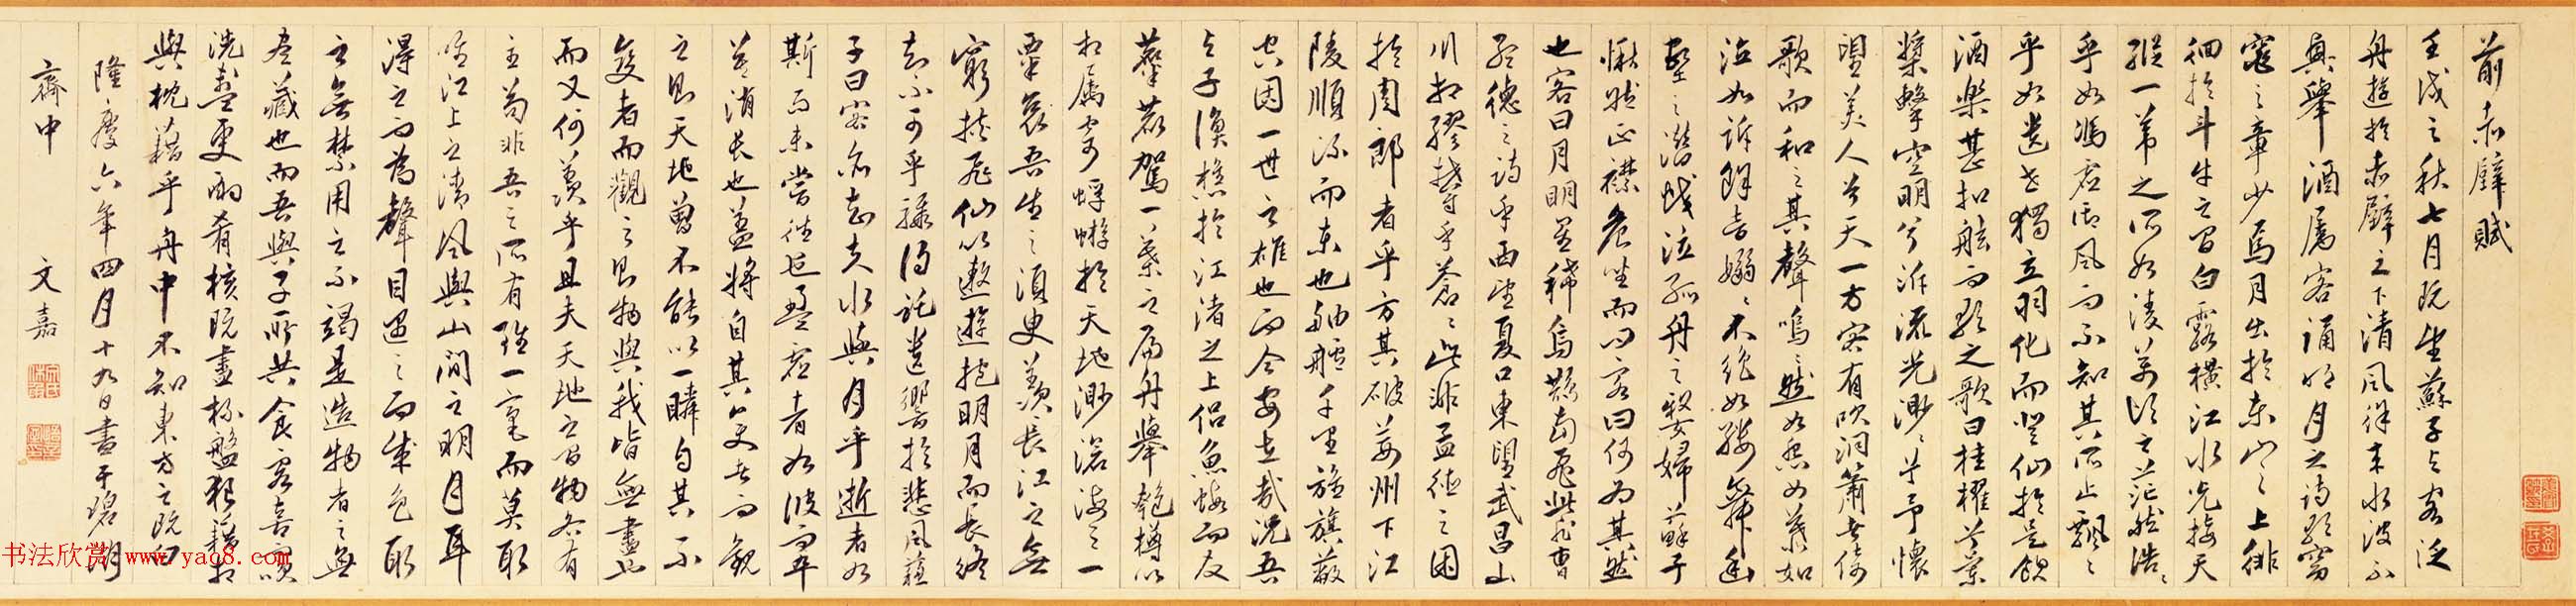 前赤壁賦
壬戌之秋七月既望蘇子與客泛
舟遊於赤壁之下清風徐來水波不
興舉酒屬客誦明月之詩歌窈
窕之章少焉月出於東山之上徘
徊於斗牛之間白露橫江水光接天
縱一葦之所如凌萬頃之茫然浩浩
乎如馮虛御風而不知其所止飄飄
乎如遺世獨立羽化而登仙於是飲
酒樂甚扣舷而歌之歌曰桂櫂兮蘭
槳擊空明兮泝流光渺渺兮予懷
望美人兮天一方客有吹洞簫者倚
歌而和之其聲嗚嗚然如怨如慕如
泣如訴餘音嫋嫋不絕如縷舞幽
壑之潛蛟泣孤舟之嫠婦蘇子
愀然正襟危坐而問客曰何為其然
也客曰月明星稀烏鵲南飛此非曹
孟德之詩乎西望夏口東望武昌山
川相繆鬱乎蒼蒼此非孟德之困
於周郎者乎方其破荊州下江
陵順流而東也舳艫千里旌旗蔽
空固一世之雄也而今安在哉況吾
與子漁樵於江渚之上侶魚蝦而友
麋鹿駕一葉之扁舟舉匏樽以
相屬寄蜉蝣於天地渺滄海之一
粟哀吾生之須臾羨長江之無
窮挾飛仙以遨遊抱明月而長終
知不可乎驟得託遺響於悲風蘇
子曰客亦知夫水與月乎逝者如
斯而未嘗往也盈虛者如彼而卒
莫消長也蓋將自其變者而觀
之則天地曾不能以一瞬自其不
變者而觀之則物與我皆無盡也
而又何羨乎且夫天地之間物各有
主苟非吾之所有雖一毫而莫取
惟江上之清風與山間之明月耳
得之而為聲目遇之而成色取
之無禁用之不竭是造物者之無
盡藏也而吾與子所共食客喜而笑
洗盞更酌肴核既盡杯盤狼藉相
與枕藉乎舟中不知東方之既白
隆慶六年四月十九日書于碧湖
齋中 文嘉
书法欣赏 www.yac8.com